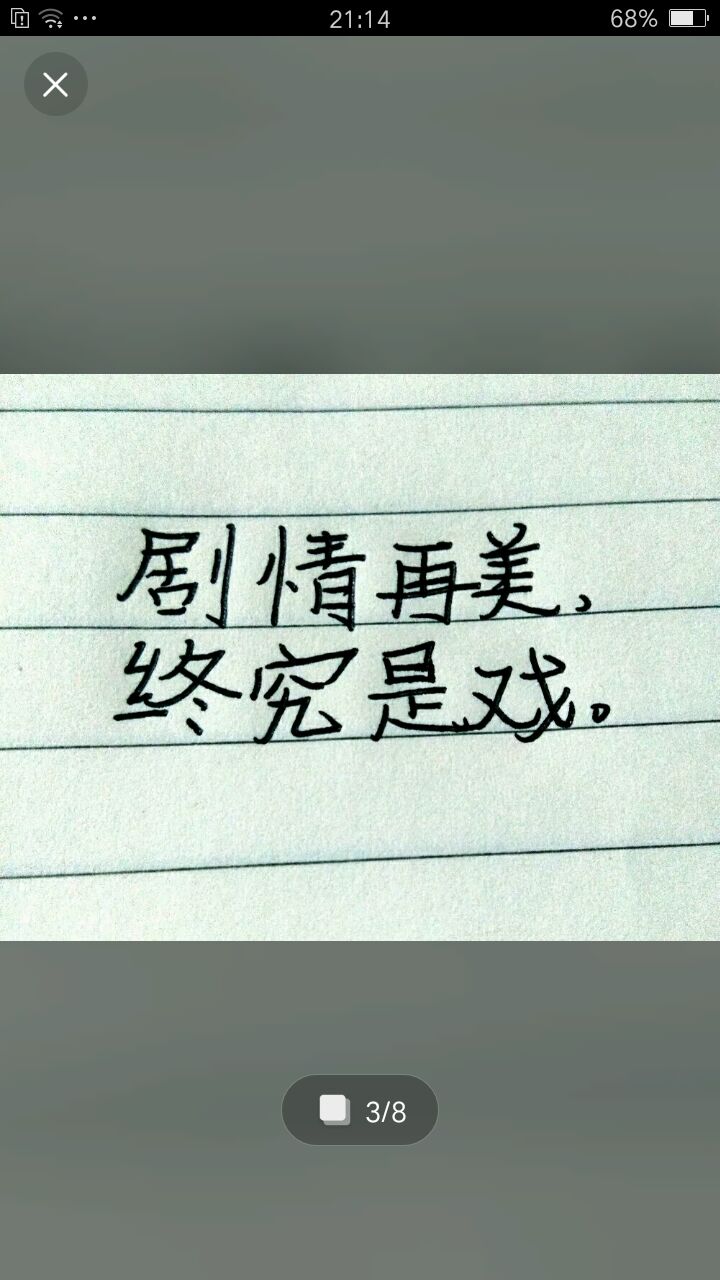 21:14
68%
剧情再美，
终究是戏。
3/8